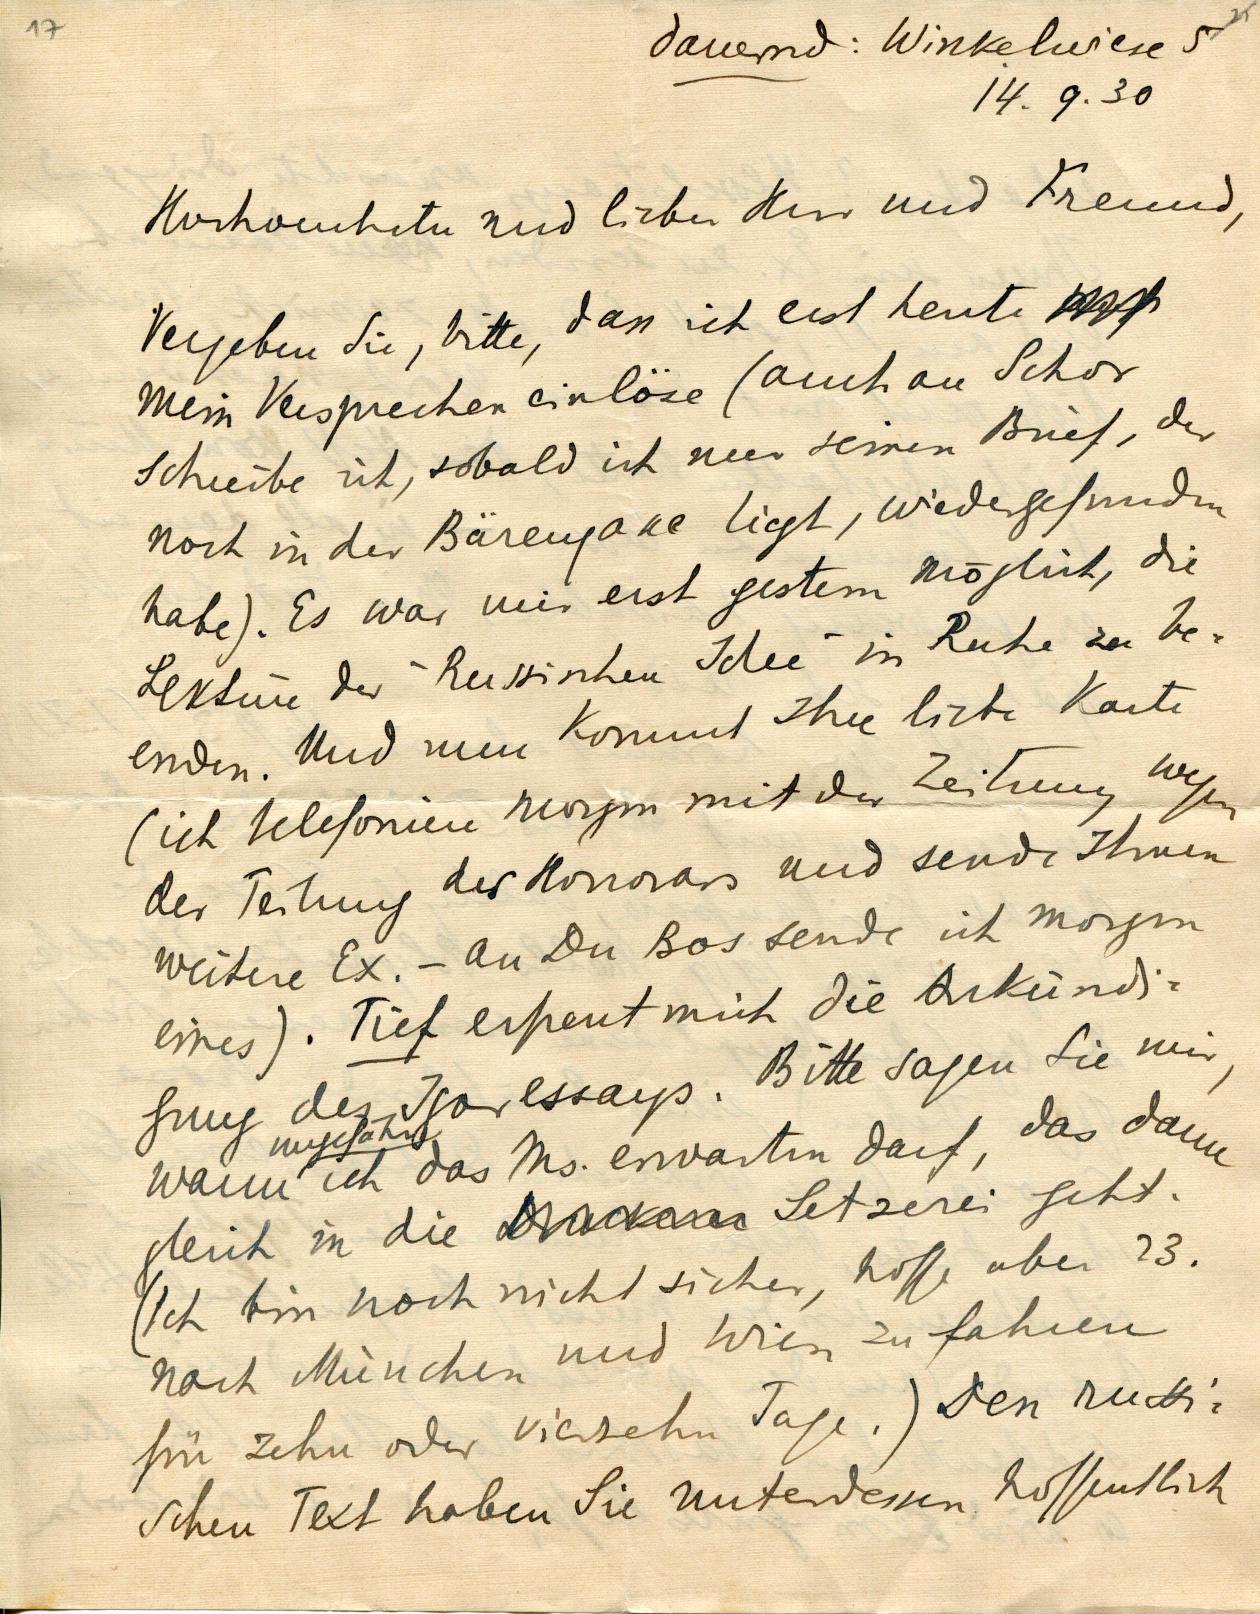 17
dauernd: Winkelwiese 5
14. 9. 30
Hochverehrter und lieber Herr und Freund,
Vergeben Sie, bitte, dass ich erst heute
mein Versprechen einlöse (auch an Schor
schreibe ich, sobald ich nur seinen Brief, der
noch in der Bärengasse liegt, wiedergefunden
habe). Es war mir erst gestern möglich, die
Lektüre der "Russischen Idee" in Ruhe zu be-
enden. Und nun kommt Ihre liebe Karte
(ich telefoniere morgen mit der Zeitung wegen
der Teilung des Honorars und sende Ihnen
weitere Ex. – an Du Bos sende ich morgen
eines). Tief erfreut mich die Ankündi-
gung des Igoressays. Bitte sagen Sie mir,
wann ungefähr ich das Ms. erwarten darf, das dann
gleich in die Druckerei Setzerei geht.
(Ich bin noch nicht sicher, hoffe aber 23.
nach München und Wien zu fahren
für zehn oder vierzehn Tage.) Den russi-
schen Text haben Sie unterdessen hoffentlich